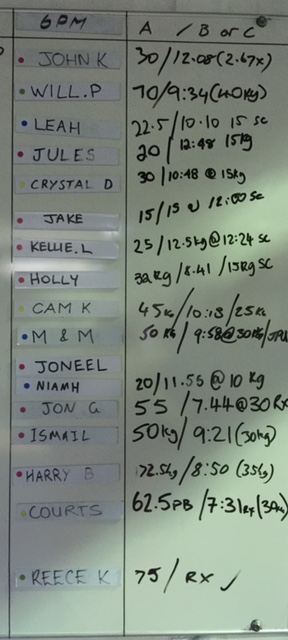 6PM A / B or C
JOHN K 30/12.08(2.67x)
WILL.P 70/9:34(40kg)
LEAH 22.5/10.10 15 sc
JULES 20 12:48 15kg
CRYSTAL D 30/10:48 @ 15kg
JAKE 15/15 @ 12:00 sc
KELLIE.L 25/12.5kg@12:24 sc
HOLLY 32kg/8.41/15kg SC
CAM K 45kg/10:13/25kg
M & M 50 KG/9:58@30KG/
JONEEL
NIAMH 20/11.55 @ 10 kg
JON G 55/7.44@30 RX
ISMAIL 50kg/9:21(30kg)
HARRY B 72.5kg/8:50 (35kg)
COURTS 62.5PB/7:31RX(30kg)
REECE K 75/RX ✓